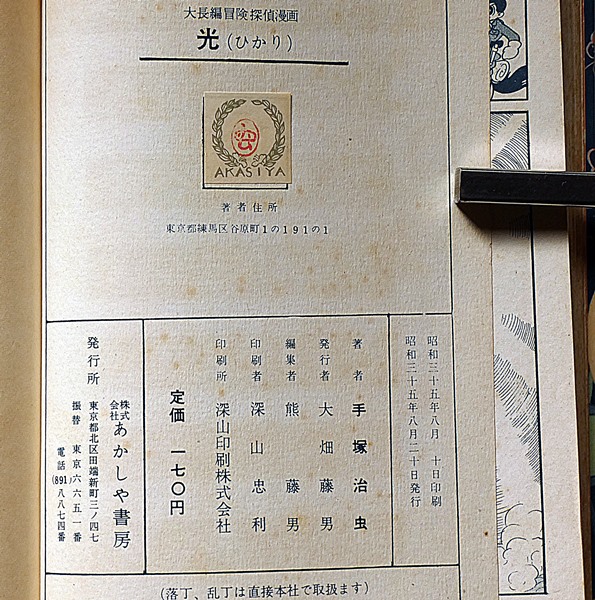 大長編冒険探偵漫画
光(ひかり)
AKASIYA
著者住所
東京都練馬区谷原町1の191の1
昭和三十五年八月 十日印刷
昭和三十五年八月二十日発行
著者 手塚治虫
発行者 大畑藤男
編集者 熊藤男
印刷者 深山忠利
印刷所 深山印刷株式会社
定価 一七〇円
発行所 株式会社 あかしや書房
東京都北区田端新町三ノ四七
振替 東京六六五一番
電話(891)八八七四番
(落丁、乱丁は直接本社で取扱ます)